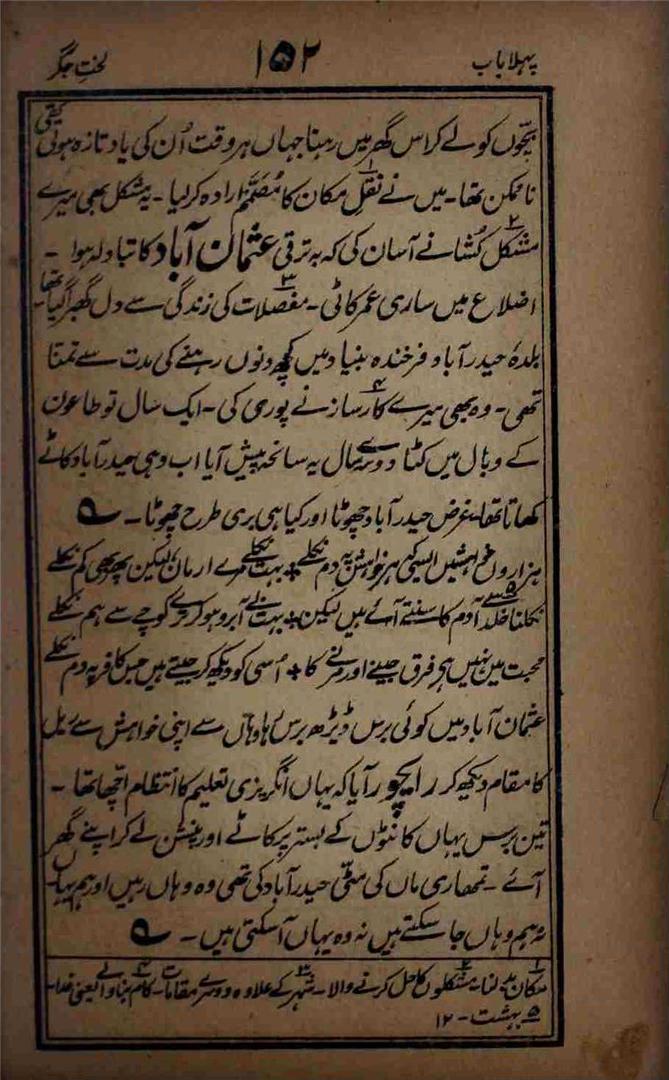 پہلا باب
۱۵۲
لختِ جگر
بچّوں کو لے کر اس گھر میں رہنا جہاں ہر وقت اُن کی یاد تازہ ہوتی
ناممکن تھا۔ میں نے نقلِ مکان کا مُصمّم ارادہ کر لیا۔ یہ مشکل بھی میرے
مشکل کُشا نے آسان کی کہ بہ ترقی عثمان آباد کا تبادلہ ہوا۔
اضلاع میں ساری عمر کاٹی۔ مفصلات کی زندگی سے دل گھبرا گیا تھا۔
بلدۂ حیدرآباد فرخندہ بنیاد میں کچھ دنوں رہنے کی مدت سے تمنا
تھی۔ وہ بھی میرے کارساز نے پوری کی۔ ایک سال تو طاعون
کے وبال میں کٹا دوسرے سال یہ سانحہ پیش آیا اب وہی حیدرآباد کاٹے
کھاتا تھا۔ غرض حیدرآباد چھوٹا اور کیا ہی بری طرح چھوٹا۔ ؎
ہزاروں خواہشیں ایسی کہ ہر خواہش پہ دم نکلے + بہت نکلے مرے ارمان لیکن پھر بھی کم نکلے
نکلنا خلد سے آدم کا سنتے آئے ہیں لیکن + بہت بے آبرو ہو کر ترے کوچے سے ہم نکلے
محبت میں نہیں ہے فرق جینے اور مرنے کا + اُسی کو دیکھ کر جیتے ہیں جس کافر پہ دم نکلے
عثمان آباد میں کوئی برس ڈیڑھ برس رہا وہاں سے اپنی خواہش سے ریل
کا مقام دیکھ کر رایچور آیا کہ یہاں انگریزی تعلیم کا انتظام اچھا تھا۔
تین برس یہاں کانٹوں کے بستر پر کاٹے اور پنشن لے کر اپنے گھر
آئے۔ تمھاری ماں کی مٹّی حیدرآباد کی تھی وہ وہاں رہیں اور ہم یہاں۔
نہ ہم وہاں جا سکتے ہیں نہ وہ یہاں آ سکتی ہیں۔ ؎
۱ مکان بدلنا۔ ۲ مشکلوں کا حل کرنے والا۔ ۳ شہر کے علاوہ دوسرے مقامات۔ ۴ کام بنانے والا یعنی خدا۔
۵ بہشت۔ ۱۲